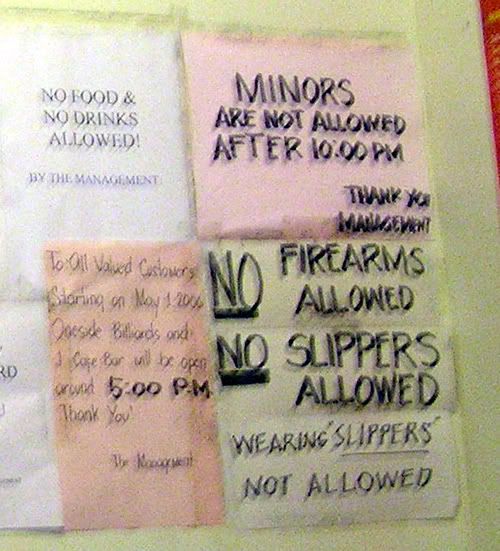 NO FOOD &
NO DRINKS
ALLOWED!
BY THE MANAGEMENT
MINORS
ARE NOT ALLOWED
AFTER 10:00 PM
THANK YOU
MANAGEMENT
To: All Valued Customers
Starting on May 1 2006
Oneside Billiards and
J Cafe Bar will be open
around 5:00 P.M.
Thank You!
The Management
NO FIREARMS
ALLOWED
NO SLIPPERS
ALLOWED
WEARING "SLIPPERS"
NOT ALLOWED
RD